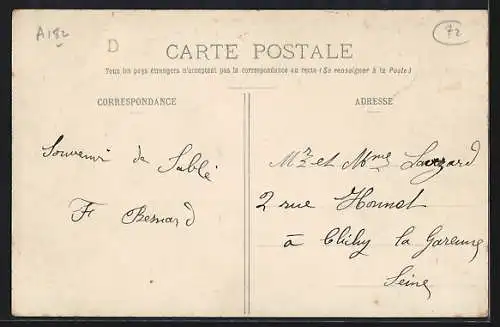 A182
D
72
CARTE POSTALE
Tous les pays étrangers n'acceptant pas la correspondance au recto (Se renseigner à la Poste)
CORRESPONDANCE
Souvenir de Sablé
F Besnard
ADRESSE
Mr et Mme
2 rue
à Clichy la Garenne
Seine